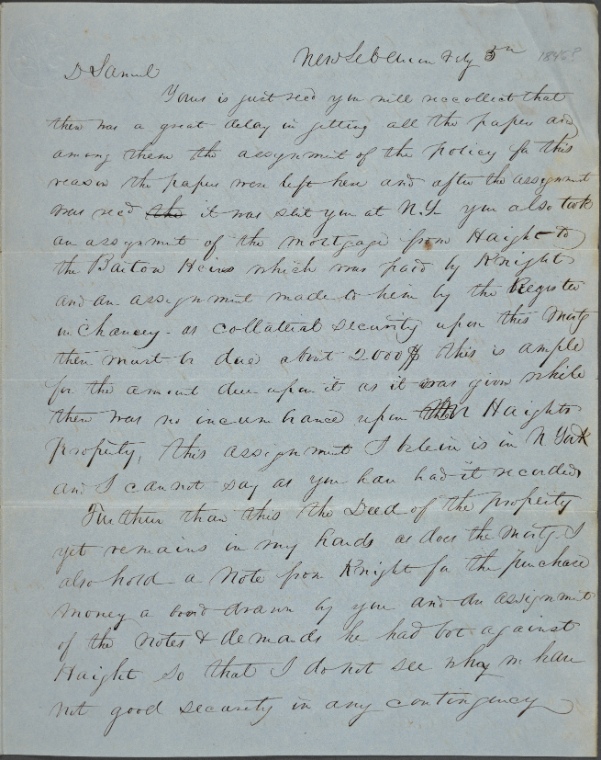 New Lebanon July 5th 1846?
Dr Samuel
Yours is just recd you will reccollect that
there was a great delay in getting all the papers and
among them the assignmt of the policy for this
reason the papers were left here and after the assignmt
was recd the it was sent you at N.Y. you also took
an assignmt of the mortgage from Haight to
the Barton Heirs which was paid by Knight
and an assignment made to him by the Register
in Chancery - as collateral security upon this Mortg
there must be due about 2000$ this is ample
for the amount due upon it as it was given while
there was no incumbrance upon Haights
property, this assignment I beleiv is in N York
and I cannot say as you have had it recorded
Further than this the Deed of the property
yet remains in my hands as does the mortg. I
also hold a Note from Knight for the purchase
money a bond drawn by you and an assignmt
of the notes & demands he had bot against
Haight so that I do not see why we have
not good security in any contingency